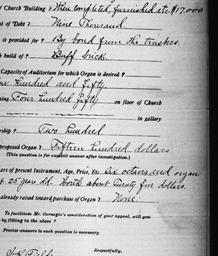 Church Building? When completed, furnished etc $17,000
of Debt? Nine Thousand.
is provided for? By bond from the trustees.
build of? Buff brick.
Capacity of Auditorium for which Organ is desired?
One hundred and fifty
Four hundred fifty on floor of Church
in gallery
ship? Two hundred
proposed Organ? Fifteen hundred dollars
(This question is for answer after investigation.)
ars of present Instrument, Age, Price, Etc. Six octave reed organ
25 years old. Worth about Twenty five dollars.
already raised toward purchase of Organ? None.
To facilitate Mr. Carnegie's consideration of your appeal, will you
by filling in the above?
Precise answers to each question is necessary
Respectfully,